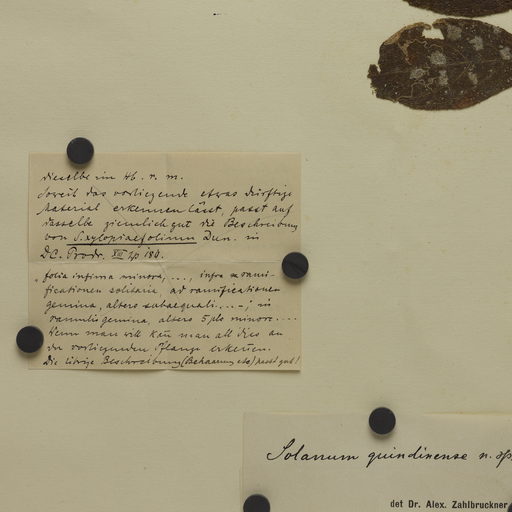 dieselbe im Hb. r. m.
Soweit das vorliegende etwas dürftige
Material erkennen lässt, passt auf
dasselbe ziemlich gut die Beschreibung
von S. xylopiaefolium Dun. in
DC. Prodr. XIII 1/p 184.
„folia infima minora, ..., infra rami-
ficationem solitaria, ad ramificationem
gemina, altero subaequali...-; in
ramulis gemina, altero 5plo minore....
Wenn man will kann man all dies an
der vorliegenden Pflanze erkennen.
Die übrige Beschreibung (Behaarung etc) passt gut!
Solanum quindinense n. sp.
det Dr. Alex. Zahlbruckner